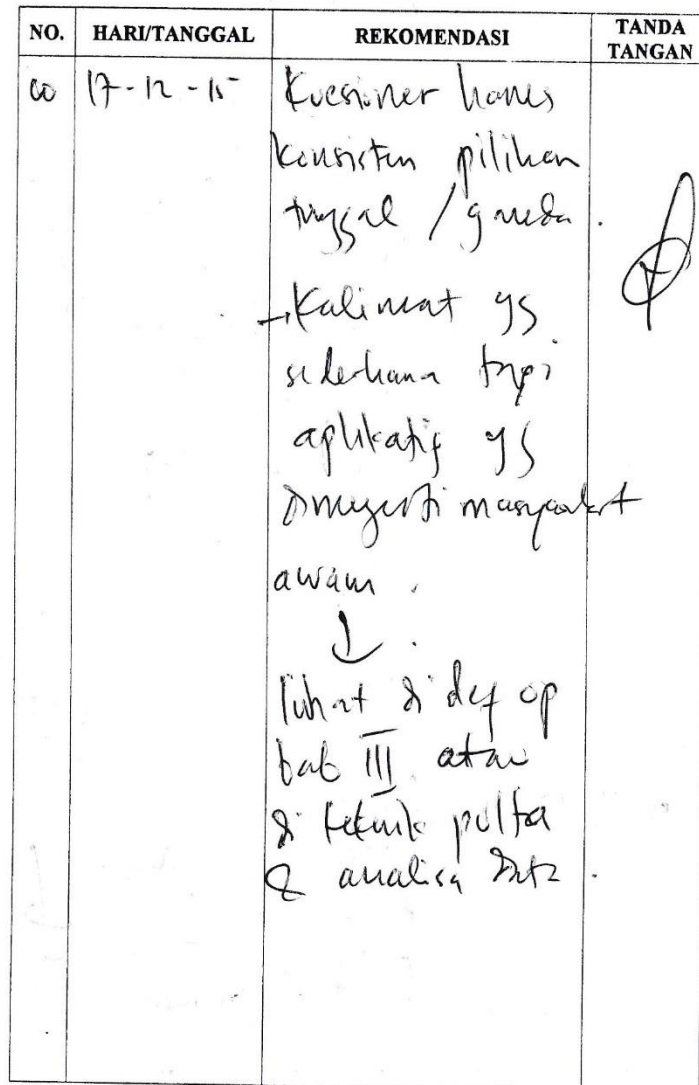 NO. HARI/TANGGAL REKOMENDASI TANDA TANGAN
17-12-15 Kuesioner harus
konsisten pilihan
tunggal / ganda.
→ Kalimat yg
sederhana tapi
aplikatif yg
dimengerti masyarakat
awam.
↓
lihat di def op
bab III atau
di teknik pulta
& analisa data.